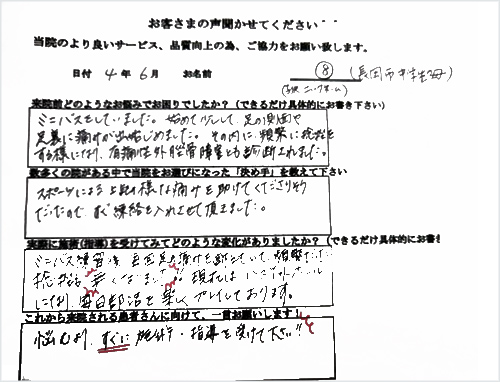 お客さまの声聞かせてください・・
当院のより良いサービス、品質向上の為、ご協力をお願い致します。
日付 4年 6月 お名前 ⑧ (長岡市中学生母)
来院前どのようなお悩みでお困りでしたか?(できるだけ具体的にお書き下さい)
ミニバスをしていました。始めて少しして、足の裏側や
足裏に痛みが出始めました。その内に、頻繁に捻挫を
する様になり、有痛性外脛骨障害とも診断されました。
数多くの院がある中で当院をお選びになった「決め手」を教えて下さい
スポーツによる上記の様な痛みを助けてくださりそう
だったので、すぐ連絡を入れさせて頂きました。
実際に施術(指導)を受けてみてどのような変化がありましたか?(できるだけ具体的にお書き
ミニバス練習後、毎回足の痛みを訴えていて、頻繁だった
捻挫も無くなました。現在は
になり、毎日部活を楽しくプレイしております。
これから来院される患者さんに向けて、一言お願いします!
悩むより、すぐに施術・指導を受けて下さい!!